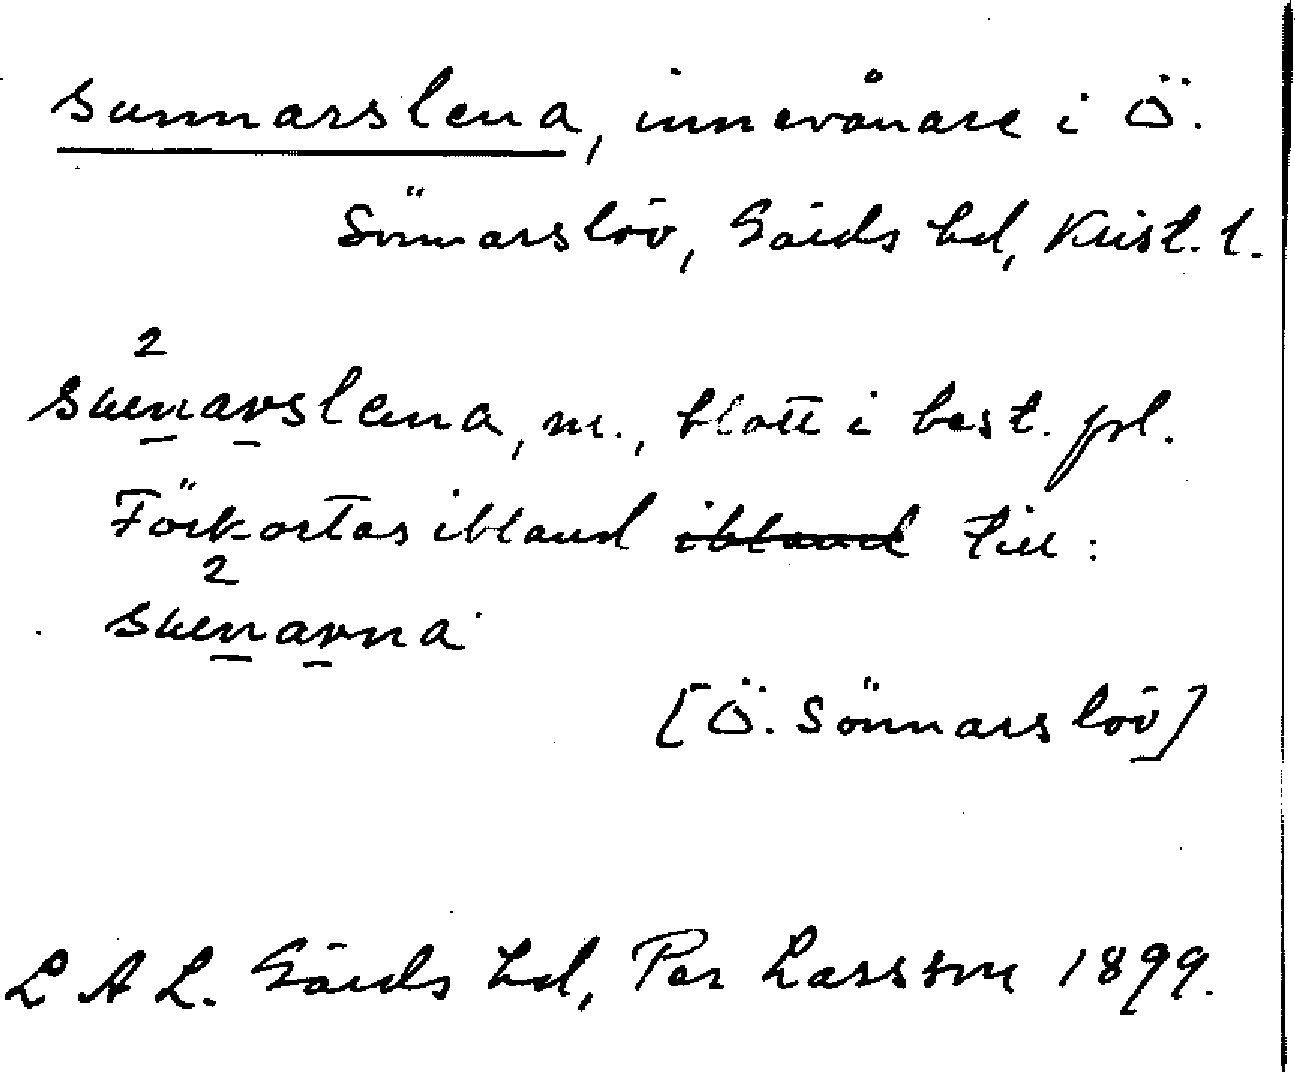 sunnarslena, innevånare i Ö.
Sönnarslöv, Gärds hd, Krist. l.
2
suenarslena, m., blott i best. pl.
Förkortas ibland ibland till:
2
suenarna
[Ö. Sönnarslöv]
L A L. Gärds hd, Per Larsson 1899.